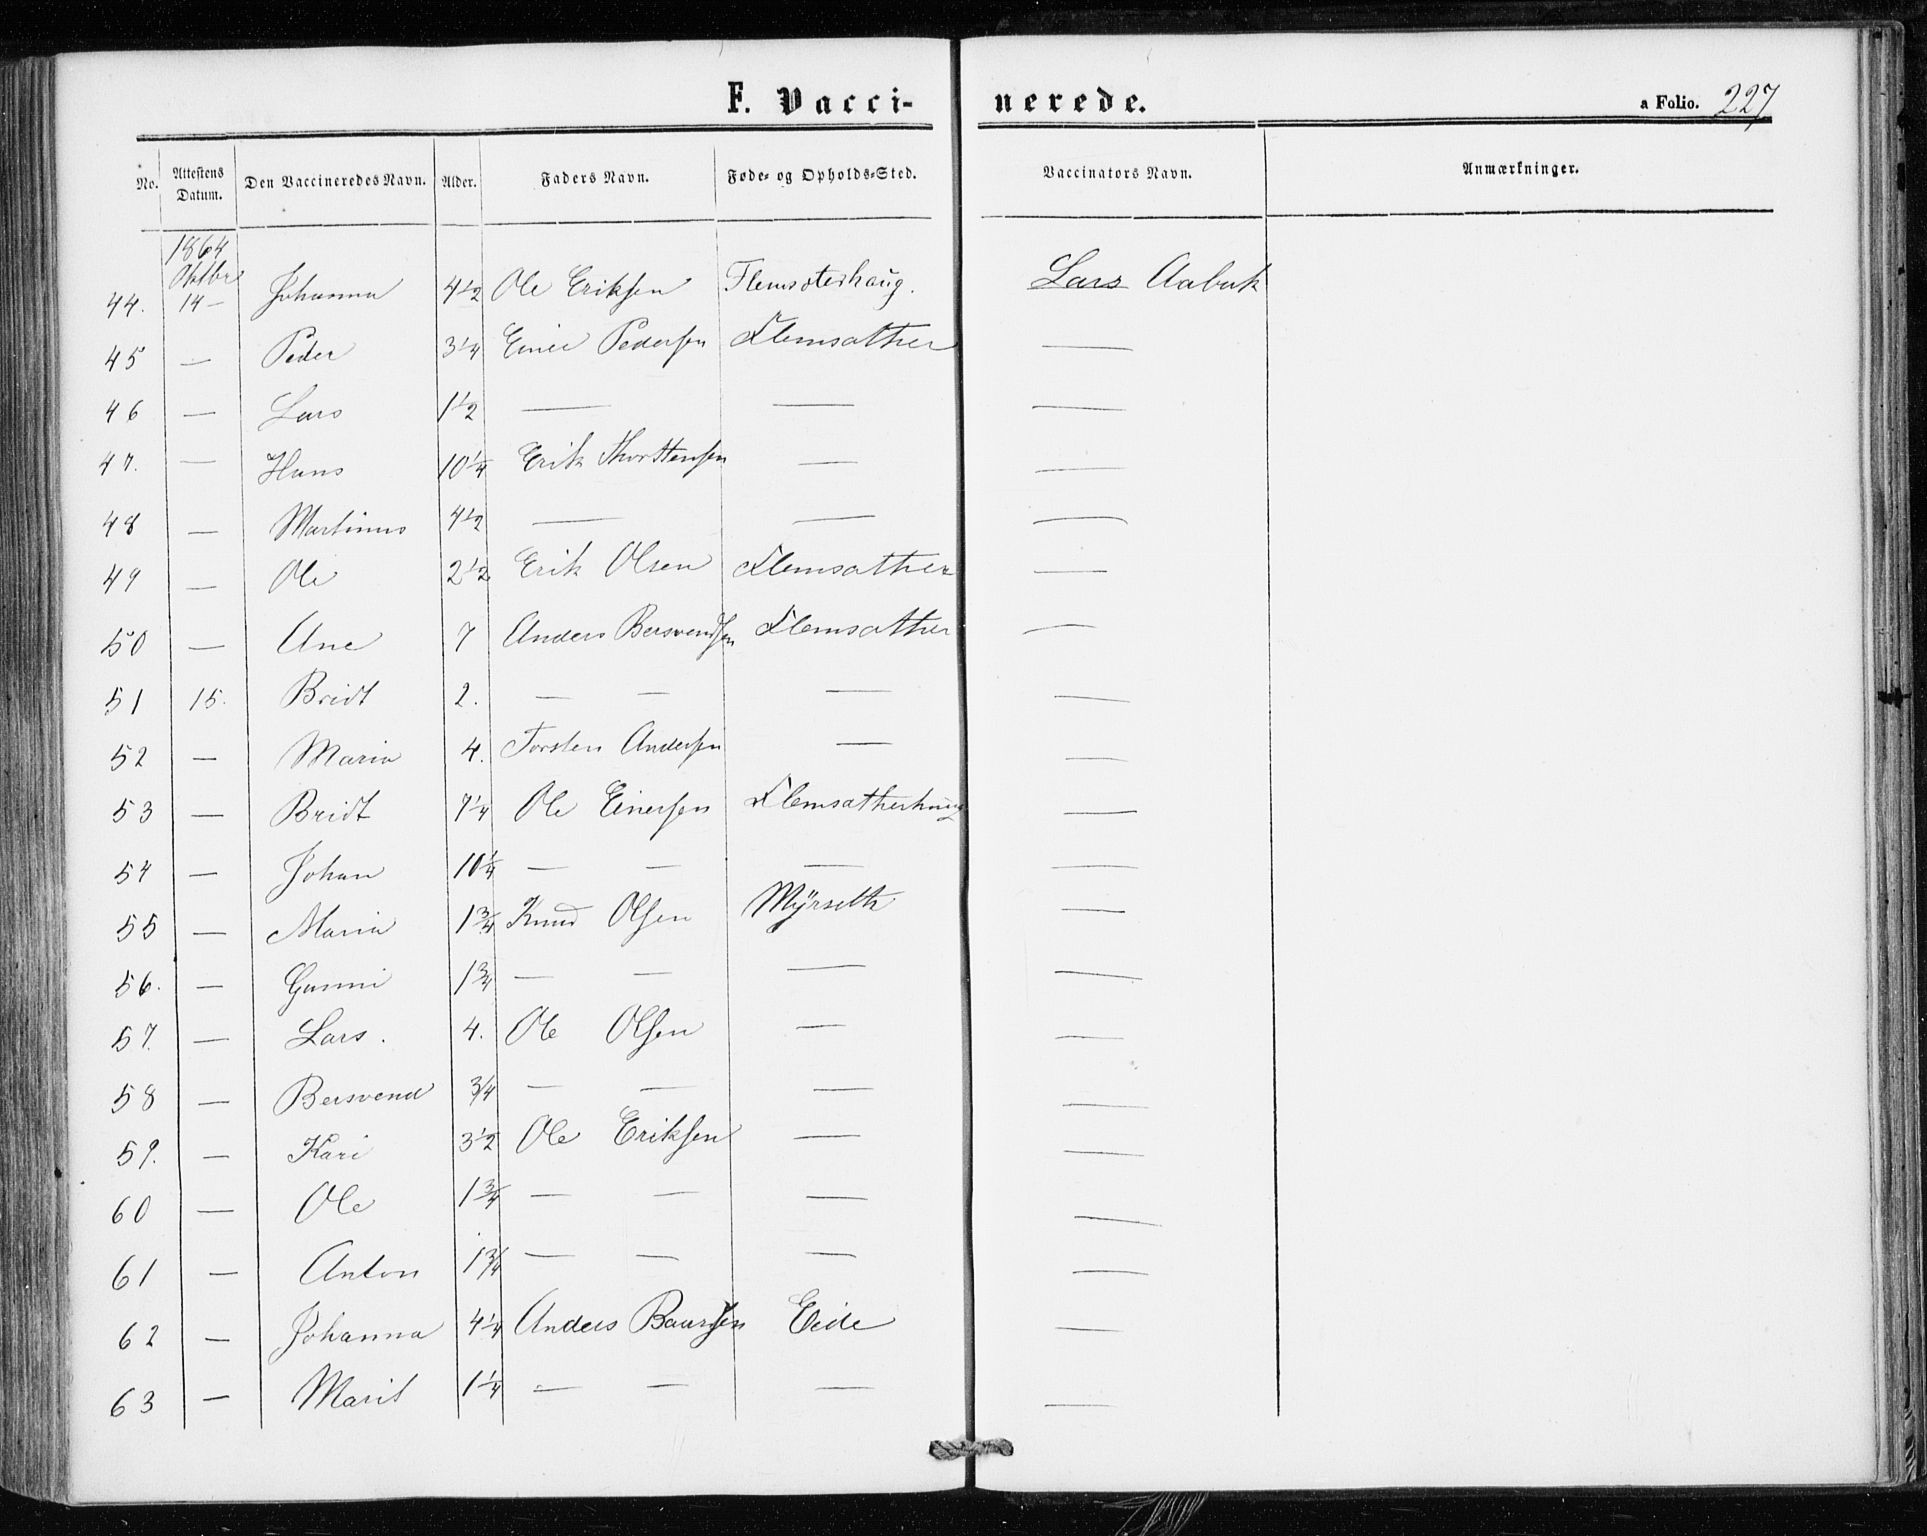 F. Vacci-nerede.
a Folio. 227
No. Attestens Datum. Den Vaccineredes Navn. Alder. Faders Navn. Føde- og Opholds-Sted. Vaccinators Navn. Anmærkninger.
1864
Oktbr
44. 14 — Johanna 4 1/2 Ole Eriksen Flemsæterhaug. Lars Aabuk
45 — Peder 3 1/4 Einer Pedersen Flemsæther —
46 — Lars 1 1/2 — — —
47. — Hans 10 1/4 Erik Thorstensen — —
48 — Martinus 4 1/2 — — —
49 — Ole 2 1/2 Erik Olsen Flemsæther —
50 — Ane 7 Anders Bersvendsen Flemsæther —
51 15. Bridt 2. — — — —
52 — Maria 4. Torsten Andersen — —
53 — Bridt 7 1/4 Ole Einersen Flemsætherhaug —
54 — Johan 10 1/4 — — — —
55 — Maria 1 3/4 Knud Olsen Myrseth —
56. — Gunni 1 3/4 — — — —
57. — Lars. 4. Ole Olsen — —
58 — Bersvend 3/4 — — — —
59. — Kari 3 1/2 Ole Eriksen — —
60 — Ole 1 3/4 — — — —
61 — Anton 1 3/4 — — — —
62 — Johanna 4 1/4 Anders Baardsen Eide —
63 — Marit 1 1/4 — — — —